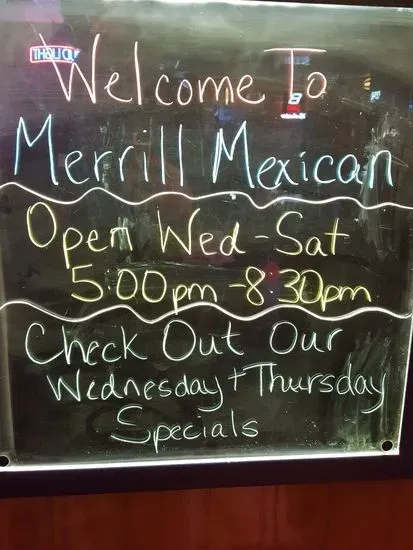 Welcome To
Merrill Mexican
Open Wed-Sat
5:00pm-8:30pm
Check Out Our
Wednesday + Thursday
Specials